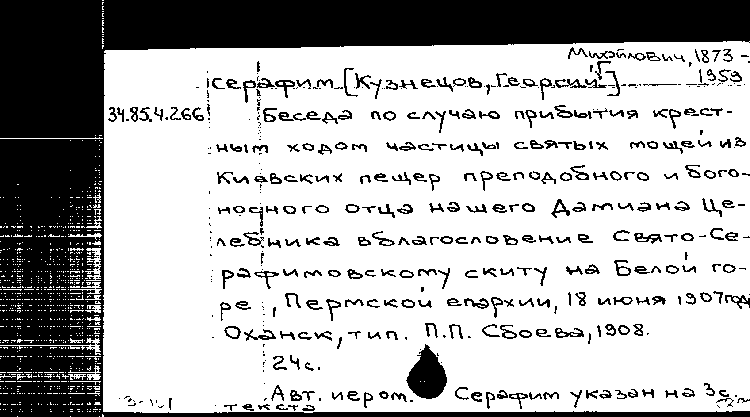 Михайлович, 1873 -
1959
Серафим [Кузнецов, Георгий]
34.85.4.266
Беседа по случаю прибытия крест-
ным ходом частицы святых мощей из
Киевских пещер преподобного и бого-
носного отца нашего Дамиана Це-
лебника в благословение Свято-Се-
рафимовскому скиту на Белой го-
ре, Пермской епархии, 18 июня 1907 года
Оханск, тип. П.П. Сбоева, 1908.
24 с.
Авт. иером. Серафим указан на 3 с.
текста